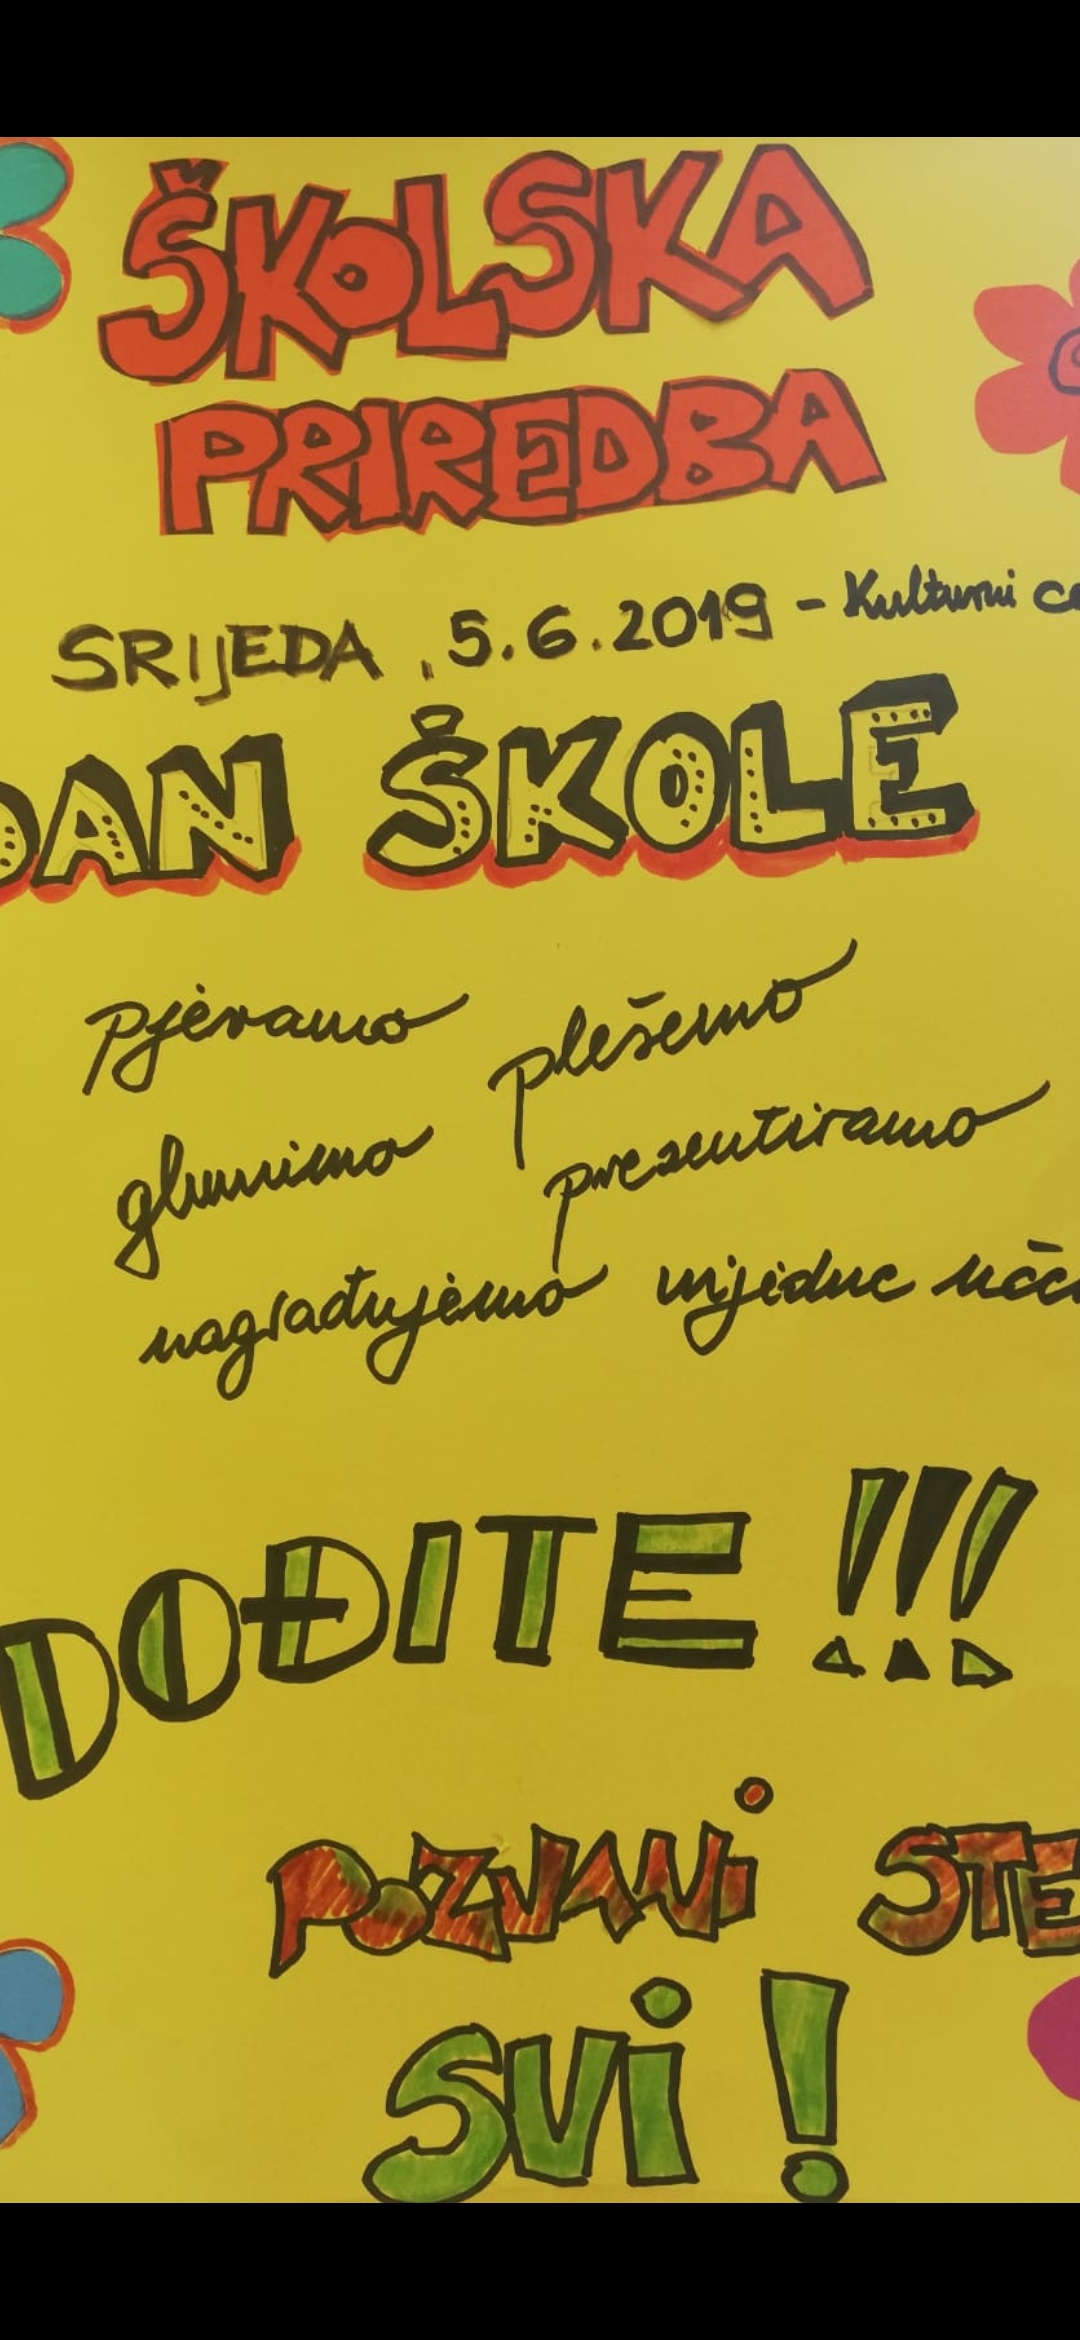 ŠKOLSKA
PRIREDBA
SRIJEDA, 5.6.2019 - Kulturni
DAN ŠKOLE
pjevamo plešemo
glumimo prezentiramo
nagrađujemo vrijedne
DOĐITE !!!
POZVANI STE
SVI!